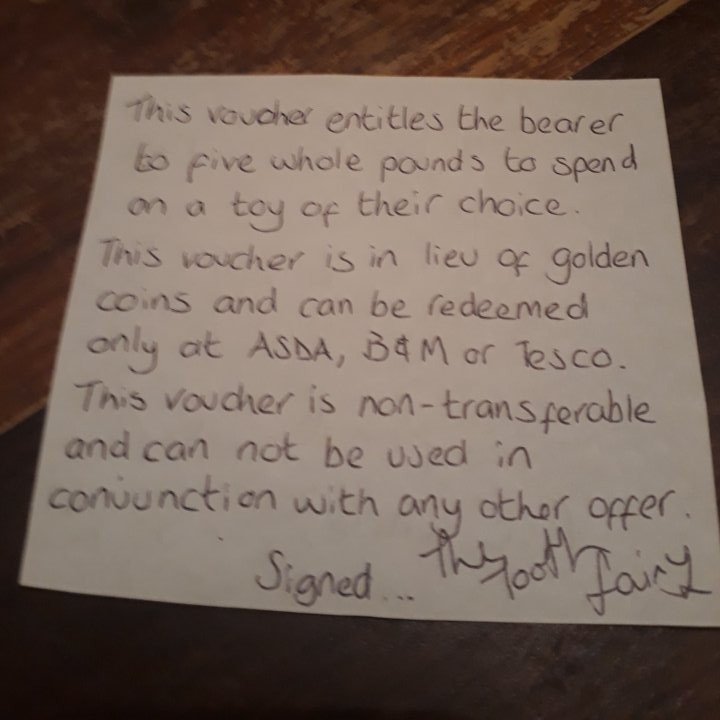 This voucher entitles the bearer
to five whole pounds to spend
on a toy of their choice.
This voucher is in lieu of golden
coins and can be redeemed
only at ASDA, B&M or Tesco.
This voucher is non-transferable
and can not be used in
conjunction with any other offer.
Signed... The Tooth Fairy